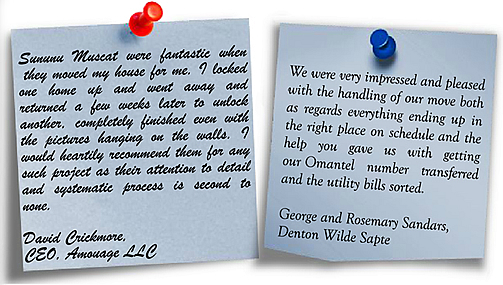 Sununu Muscat were fantastic when
they moved my house for me. I locked
one home up and went away and
returned a few weeks later to unlock
another, completely finished even with
the pictures hanging on the walls. I
would heartily recommend them for any
such project as their attention to detail
and systematic process is second to
none.
David Crickmore,
CEO, Amouage LLC
We were very impressed and pleased
with the handling of our move both
as regards everything ending up in
the right place on schedule and the
help you gave us with getting
our Omantel number transferred
and the utility bills sorted.
George and Rosemary Sandars,
Denton Wilde Sapte